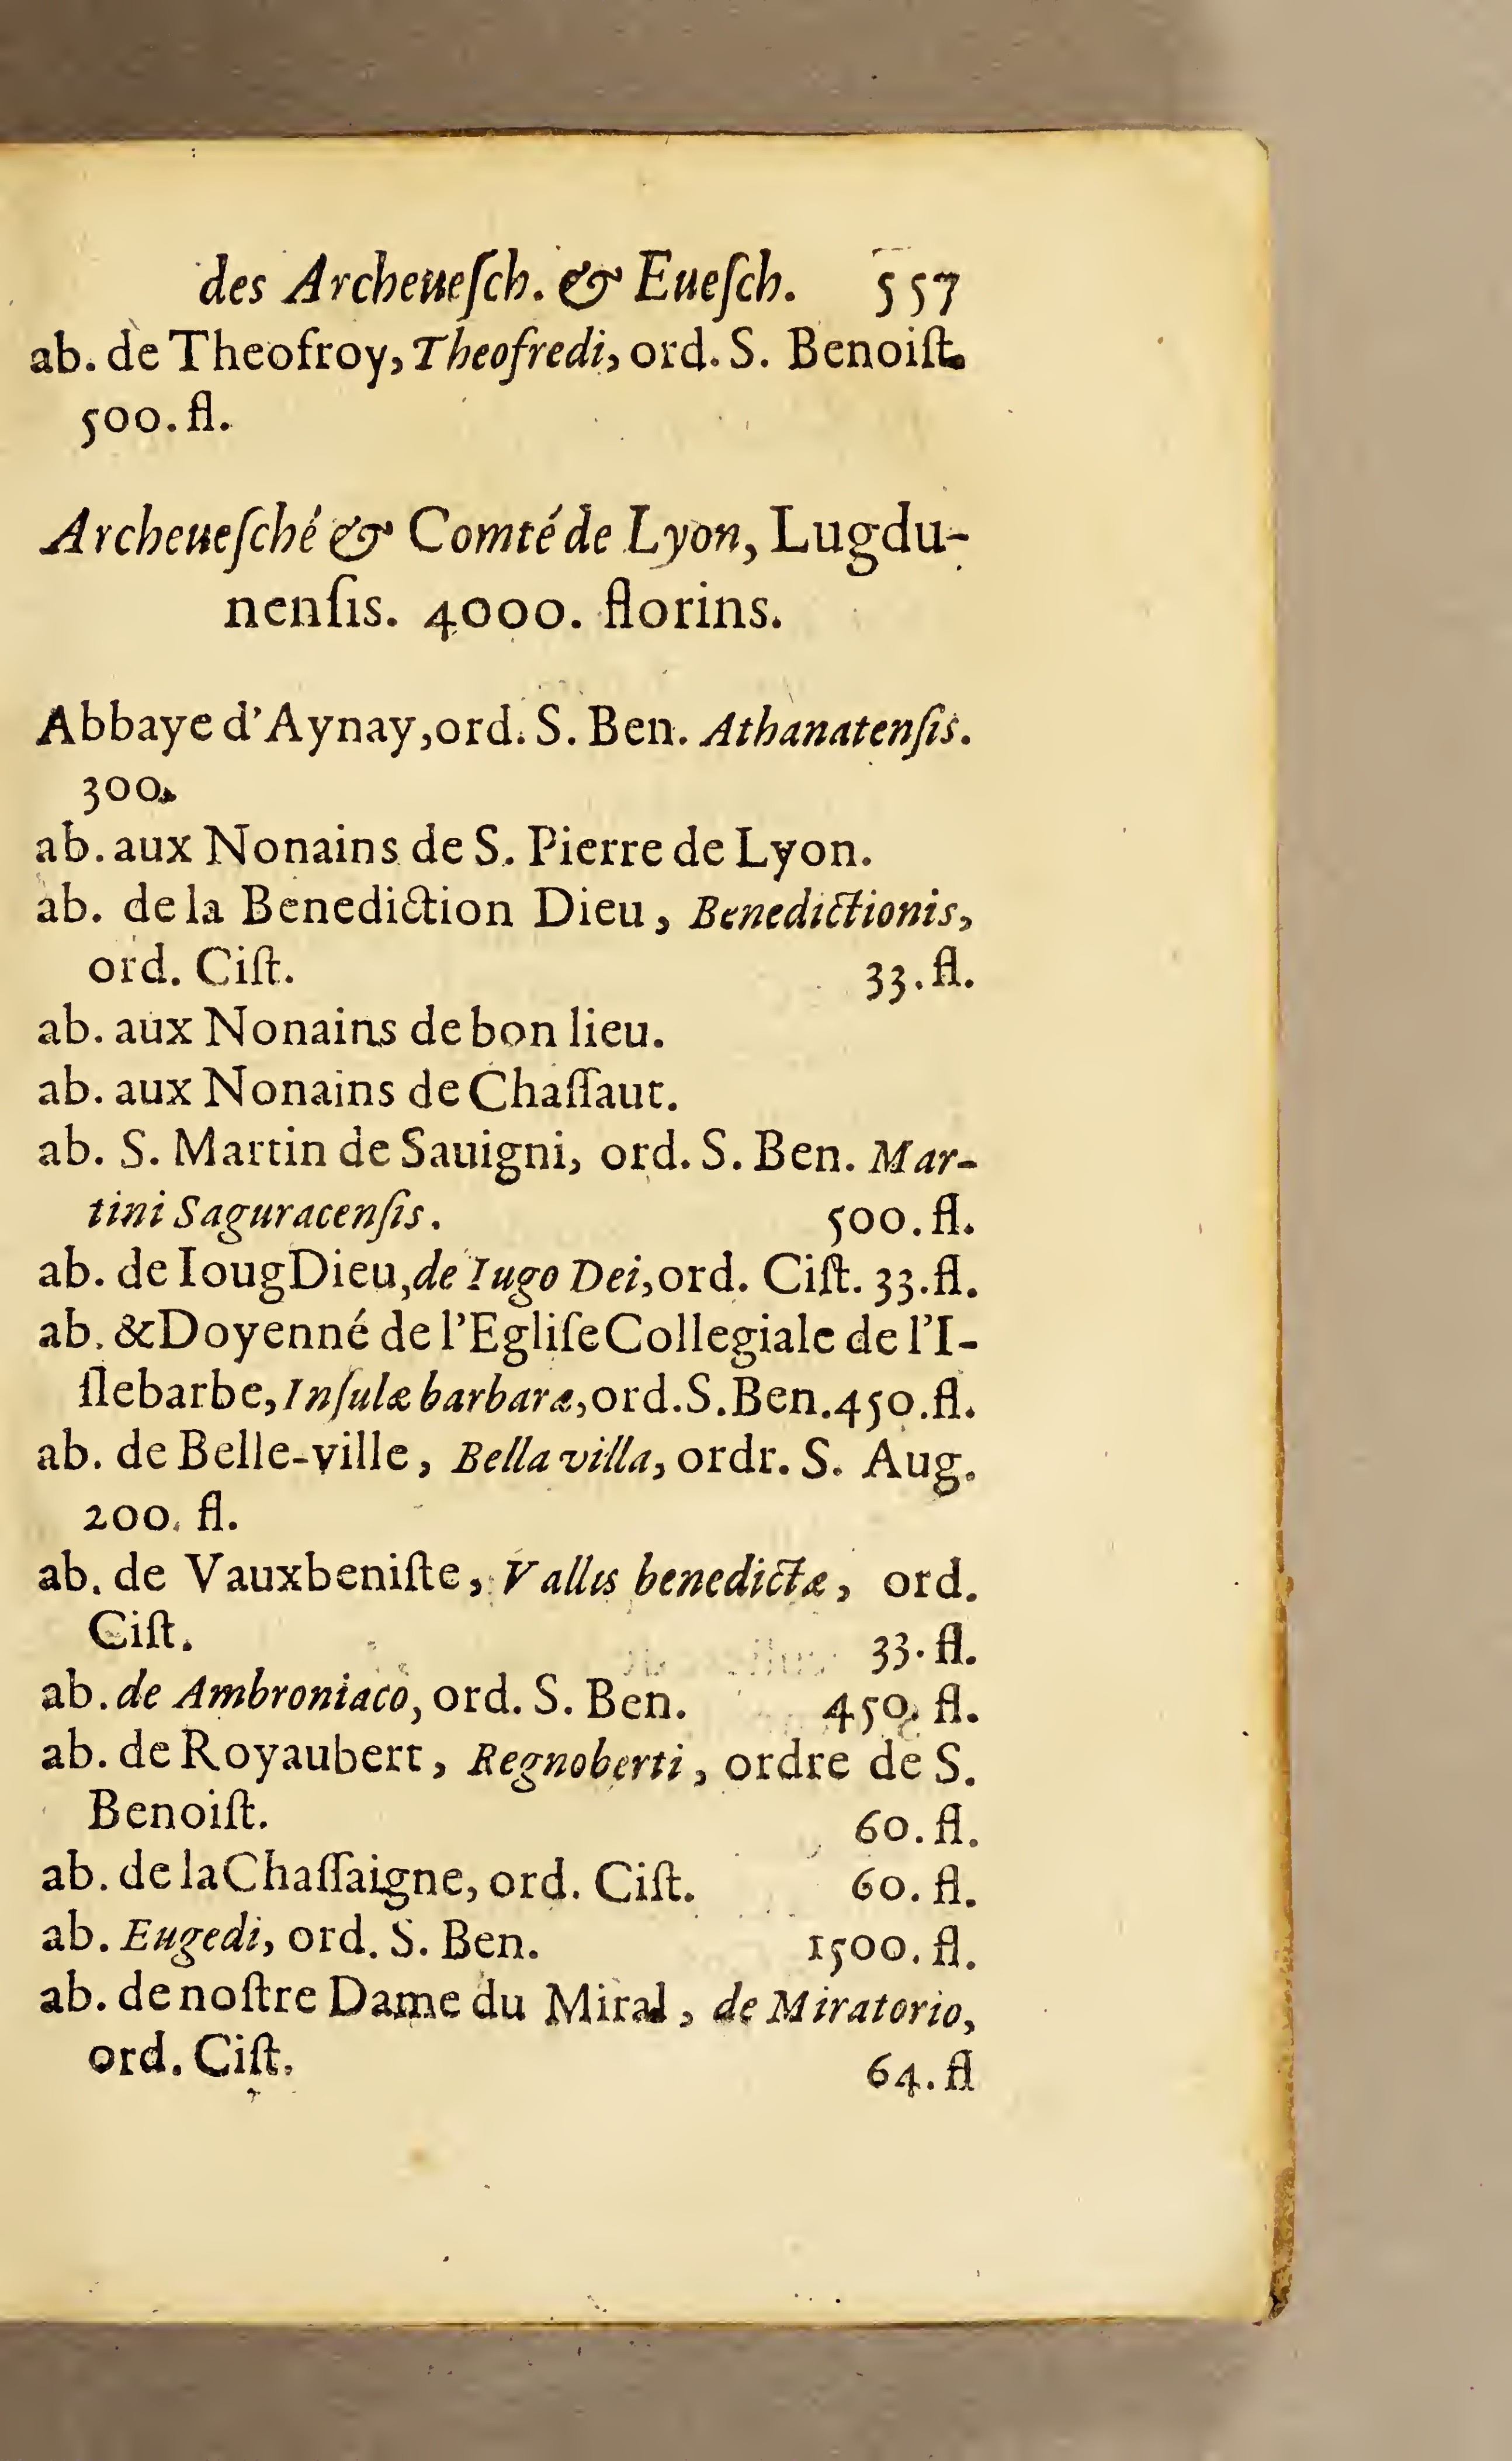 des Archeueſch. & Eueſch. 557
ab. de Theofroy, Theofredi, ord. S. Benoiſt.
500. fl.
Archeueſché & Comté de Lyon, Lugdu-
nenſis. 4000. florins.
Abbaye d'Aynay, ord. S. Ben. Athanatenſis.
300.
ab. aux Nonains de S. Pierre de Lyon.
ab. de la Benediction Dieu, Benedictionis,
ord. Ciſt. 33. fl.
ab. aux Nonains de bon lieu.
ab. aux Nonains de Chaſſaut.
ab. S. Martin de Sauigni, ord. S. Ben. Mar-
tini Saguracenſis. 500. fl.
ab. de Ioug Dieu, de Iugo Dei, ord. Ciſt. 33. fl.
ab. & Doyenné de l'Egliſe Collegiale de l'I-
ſlebarbe, Inſulæ barbaræ, ord. S. Ben. 450. fl.
ab. de Belle-ville, Bella villa, ordr. S. Aug.
200. fl.
ab. de Vauxbeniſte, Vallis benedictæ, ord.
Ciſt. 33. fl.
ab. de Ambroniaco, ord. S. Ben. 450. fl.
ab. de Royaubert, Regnoberti, ordre de S.
Benoiſt. 60. fl.
ab. de la Chaſſaigne, ord. Ciſt. 60. fl.
ab. Eugedi, ord. S. Ben. 1500. fl.
ab. de noſtre Dame du Miral, de Miratorio,
ord. Ciſt. 64. fl